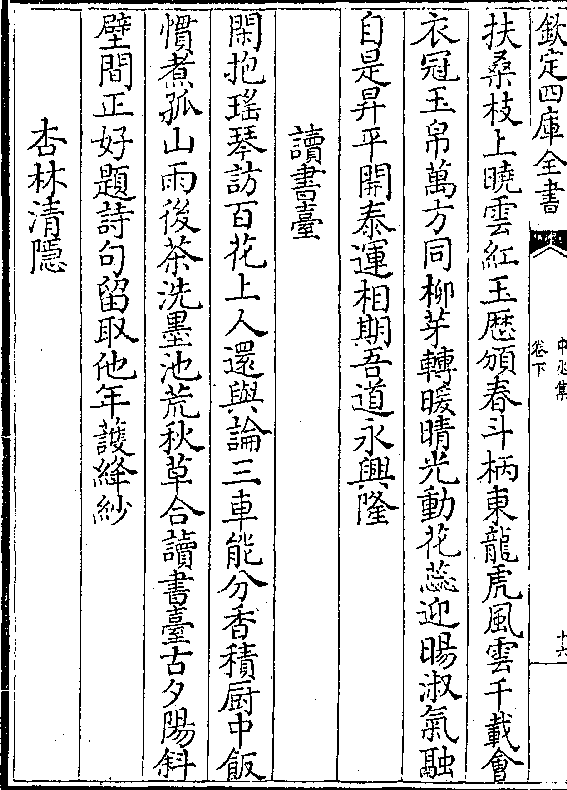 欽定四庫全書
中丞集
卷下
十六
扶桑枝上曉雲紅玉厯頒春斗柄東龍虎風雲千載會
衣冠玉帛萬方同柳芽轉暖晴光動花蕊迎暘淑氣融
自是昇平開泰運相期吾道永興隆
讀書臺
閑抱瑤琴訪百花上人還與論三車能分香積厨中飯
慣煮孤山雨後茶洗墨池荒秋草合讀書臺古夕陽斜
壁間正好題詩句留取他年護絳紗
杏林清隱